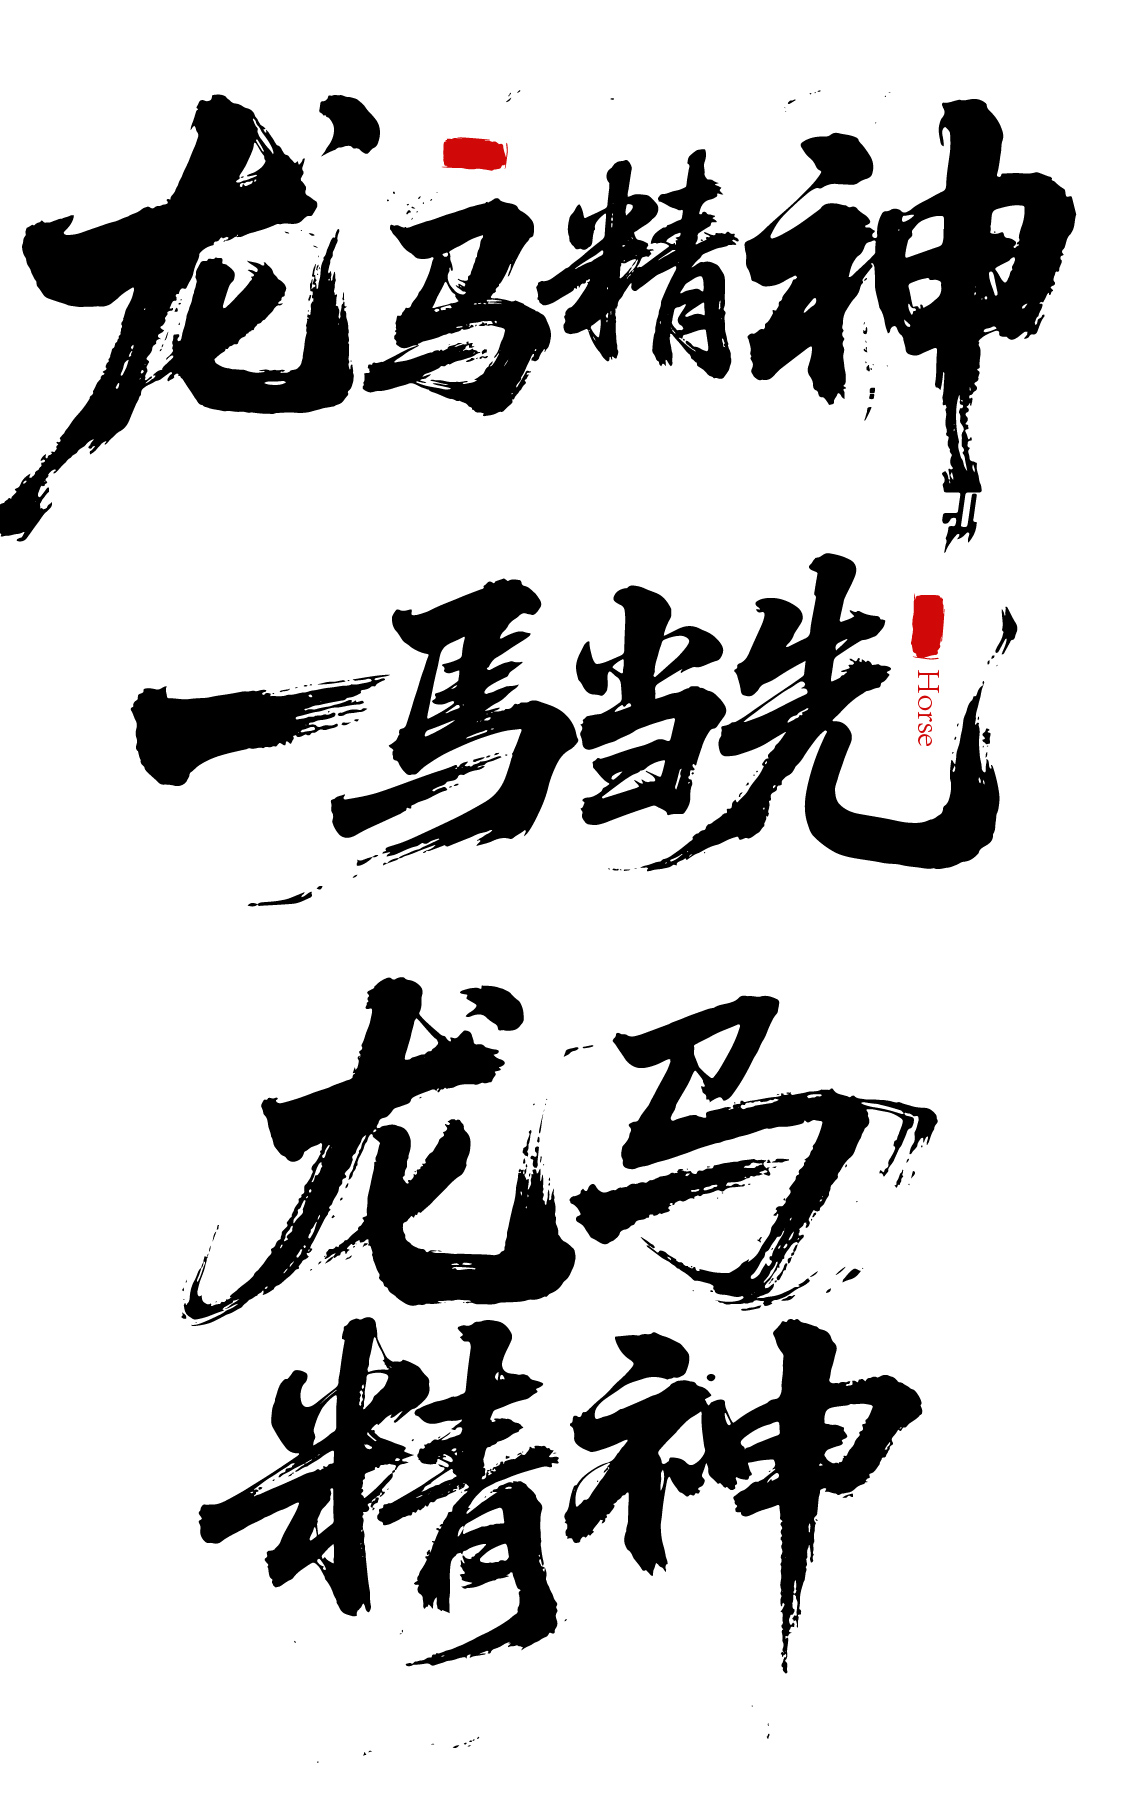 龙马精神
一馬当先
Horse
龙马
精神